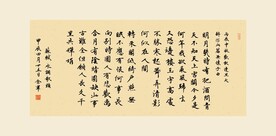 丙辰中秋歡飲達旦大
醉作此篇兼懷子由
明月幾時有把酒問青
天不知天上宮闕今夕是
何年我欲乘風歸去
又恐瓊樓玉宇高處
不勝寒起舞弄清影
何似在人間
轉朱閣低綺戶照無
眠不應有恨何事長
向別時圓人有悲歡離
合月有陰晴圓缺此事
古難全但願人長久千
里共嬋娟
蘇軾水調歌頭